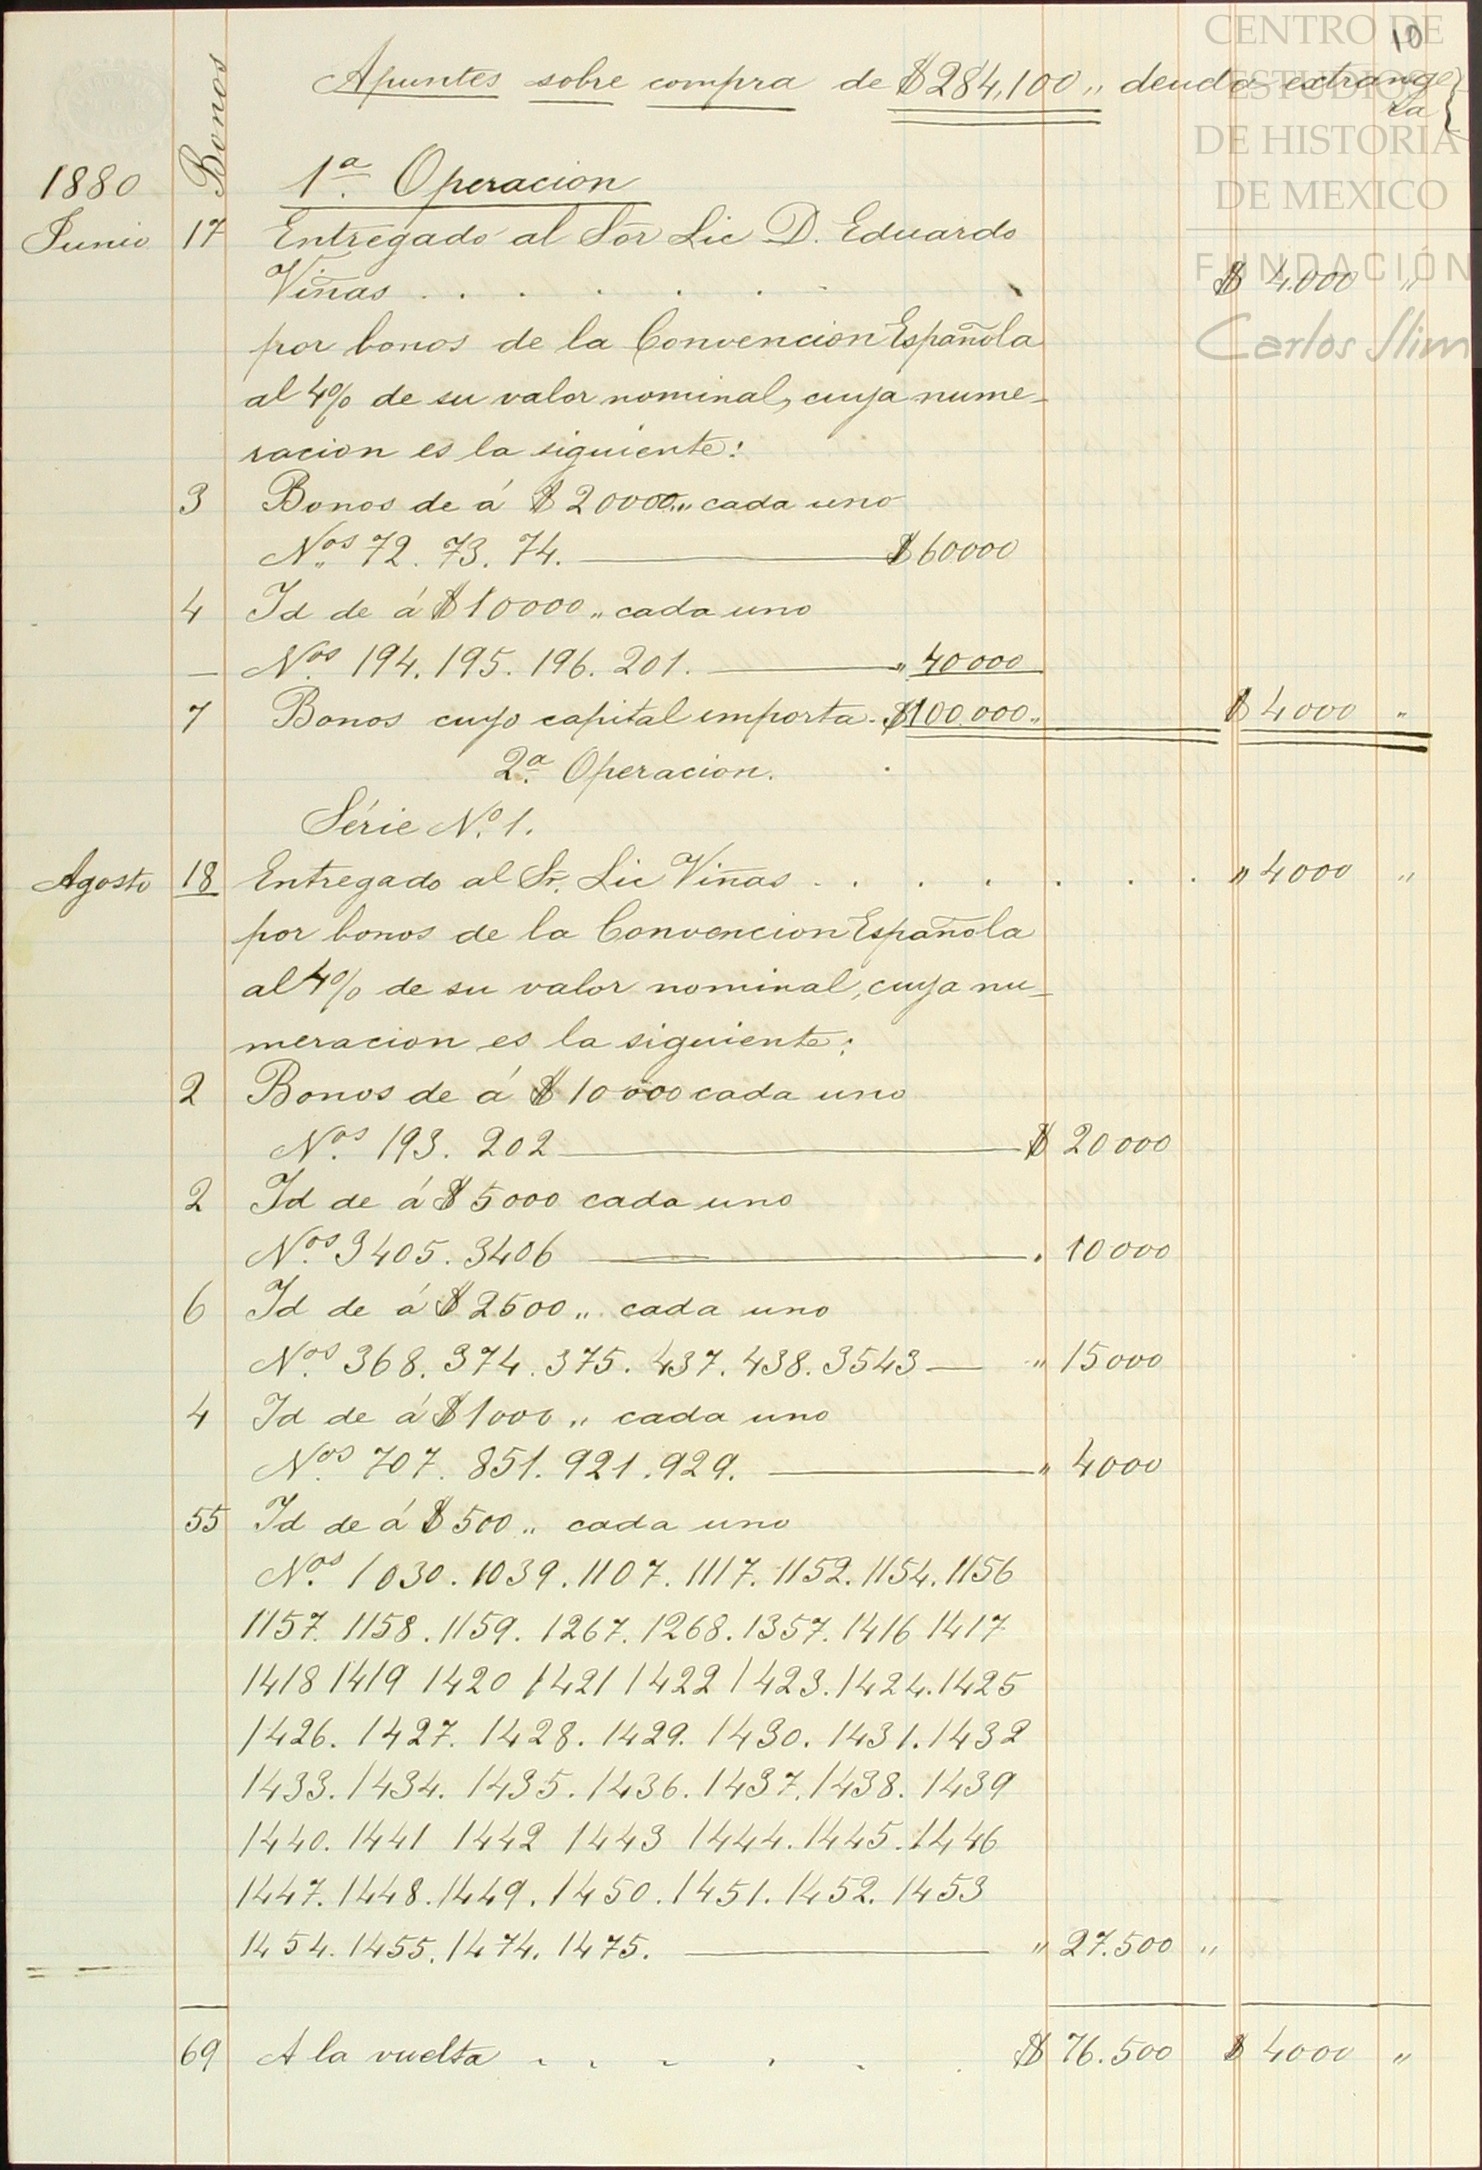 CENTRO DE
ESTUDIOS
DE HISTORIA
DE MEXICO
FUNDACIÓN
Carlos Slim
10
Apuntes sobre compra de $284,100 " deuda extrange
ra
Bonos
1880 1ª Operacion
Junio 17 Entregado al Sor Lic D. Eduardo
Viñas . . . . . . $ 4.000 "
por bonos de la Convencion Española
al 4% de su valor nominal, cuya nume-
racion es la siguiente:
3 Bonos de á $20000 " cada uno
Nos 72. 73. 74. $60000
4 Id de á $10000 " cada uno
Nos 194. 195. 196. 201. " 40000
7 Bonos cuyo capital importa. $100.000 " $ 4000 "
2ª Operacion.
Série No 1.
Agosto 18 Entregado al Sr. Lic Viñas . . . . . . . " 4000 "
por bonos de la Convencion Española
al 4% de su valor nominal, cuya nu-
meracion es la siguiente:
2 Bonos de á $10000 cada uno
Nos 193. 202 $ 20000
2 Id de á $5000 cada uno
Nos 3405. 3406 " 10000
6 Id de á $2500 " cada uno
Nos 368. 374. 375. 437. 438. 3543 " 15000
4 Id de á $1000 " cada uno
Nos 707. 851. 921. 929. " 4000
55 Id de á $500 " cada uno
Nos 1030. 1039. 1107. 1117. 1152. 1154. 1156
1157. 1158. 1159. 1267. 1268. 1357. 1416 1417
1418 1419 1420 1421 1422 1423. 1424. 1425
1426. 1427. 1428. 1429. 1430. 1431. 1432
1433. 1434. 1435. 1436. 1437. 1438. 1439
1440. 1441 1442 1443 1444. 1445. 1446
1447. 1448. 1449. 1450. 1451. 1452. 1453
1454. 1455. 1474. 1475. " 27.500 "
69 A la vuelta . . . . . $ 76.500 $ 4000 "